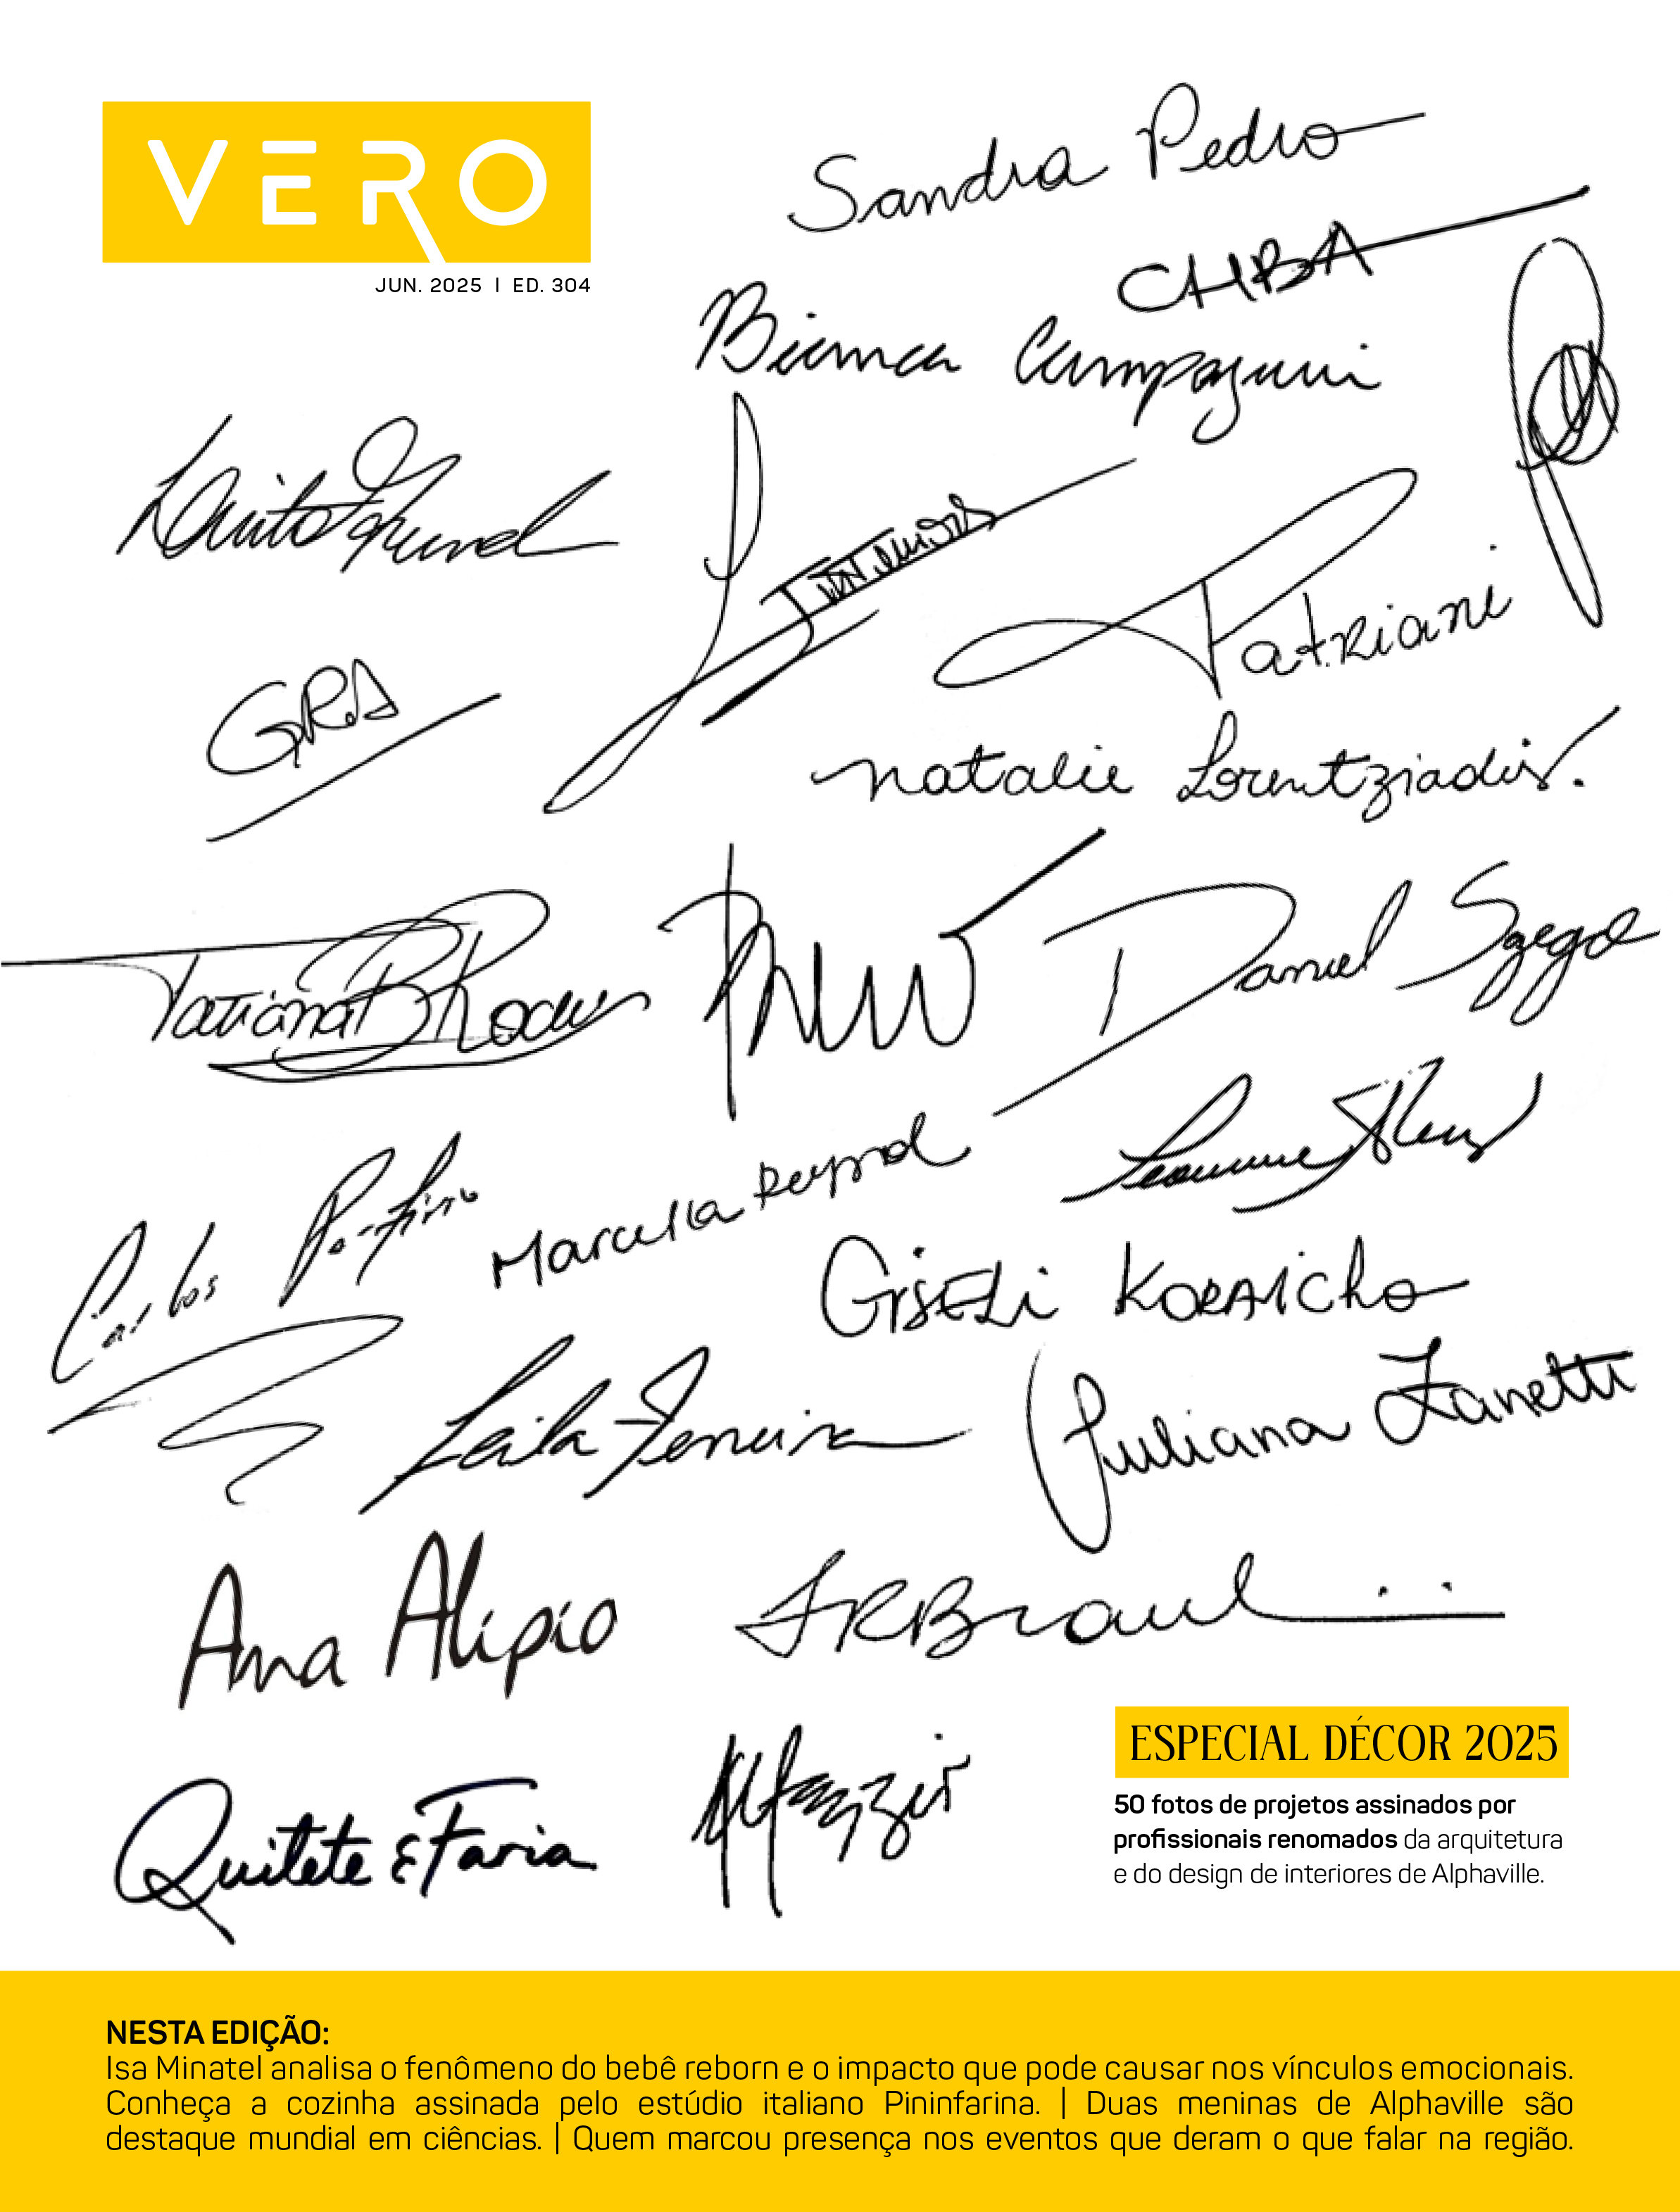 VERO
JUN. 2025 | ED. 304
Sandra Pedro
CHBA
Bianca Campagnini
Patriani
GRA
Natalie Lorentziadis.
Tatiana B Rodu
Daniel Szego
Carlos Porfirio
Marcella Reynol
GisELi KORAICHO
Leila Ferreira
Juliana Zanetti
Ana Alípio
Quitete & Faria
ESPECIAL DÉCOR 2025
50 fotos de projetos assinados por
profissionais renomados da arquitetura
e do design de interiores de Alphaville.
NESTA EDIÇÃO:
Isa Minatel analisa o fenômeno do bebê reborn e o impacto que pode causar nos vínculos emocionais.
Conheça a cozinha assinada pelo estúdio italiano Pininfarina. | Duas meninas de Alphaville são
destaque mundial em ciências. | Quem marcou presença nos eventos que deram o que falar na região.